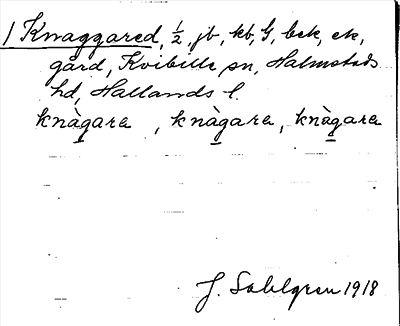 1 Knaggared, ½, jb, kb, G, bek, ek,
gård, Kvibille sn, Halmstads
hd, Hallands l.
knàgara , knàgara, knàgara
J. Sahlgren 1918